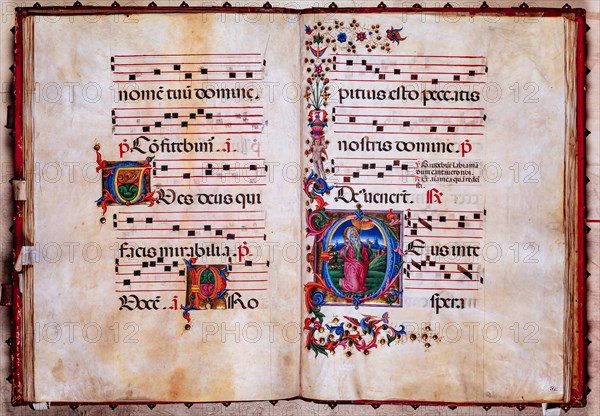 nomē tuū domine.
℟. Cōfitebim̄. ā.
Ves deus qui
facis mirabilia. ℟.
Voce. ā. RO
pitius esto peccatis
nostris domine. ℟.
De venerī. ℟.
Eus in te
spera